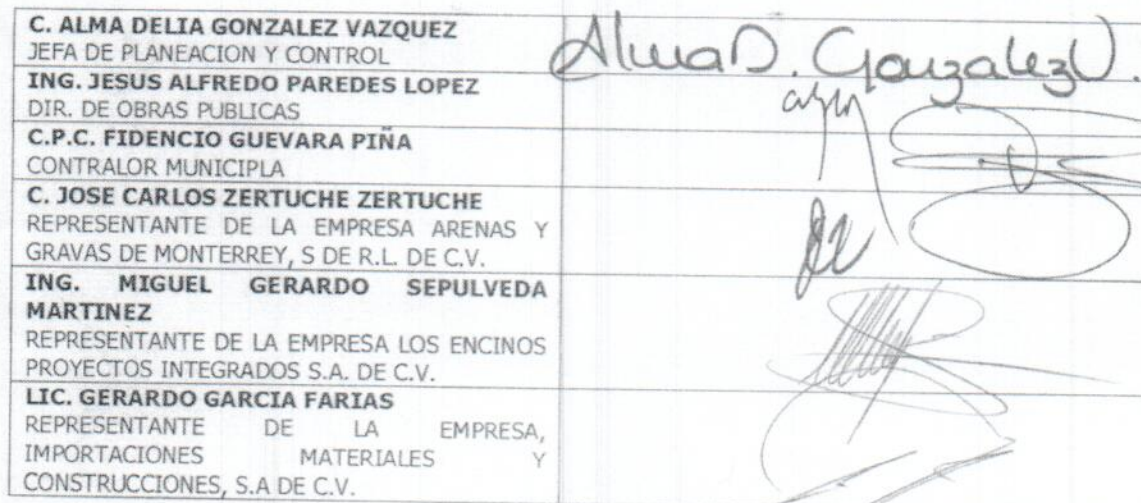 C. ALMA DELIA GONZALEZ VAZQUEZ
JEFA DE PLANEACION Y CONTROL
AlmaD. GonzalezV.
ING. JESUS ALFREDO PAREDES LOPEZ
DIR. DE OBRAS PUBLICAS
C.P.C. FIDENCIO GUEVARA PIÑA
CONTRALOR MUNICIPLA
C. JOSE CARLOS ZERTUCHE ZERTUCHE
REPRESENTANTE DE LA EMPRESA ARENAS Y
GRAVAS DE MONTERREY, S DE R.L. DE C.V.
ING. MIGUEL GERARDO SEPULVEDA
MARTINEZ
REPRESENTANTE DE LA EMPRESA LOS ENCINOS
PROYECTOS INTEGRADOS S.A. DE C.V.
LIC. GERARDO GARCIA FARIAS
REPRESENTANTE DE LA EMPRESA,
IMPORTACIONES MATERIALES Y
CONSTRUCCIONES, S.A DE C.V.